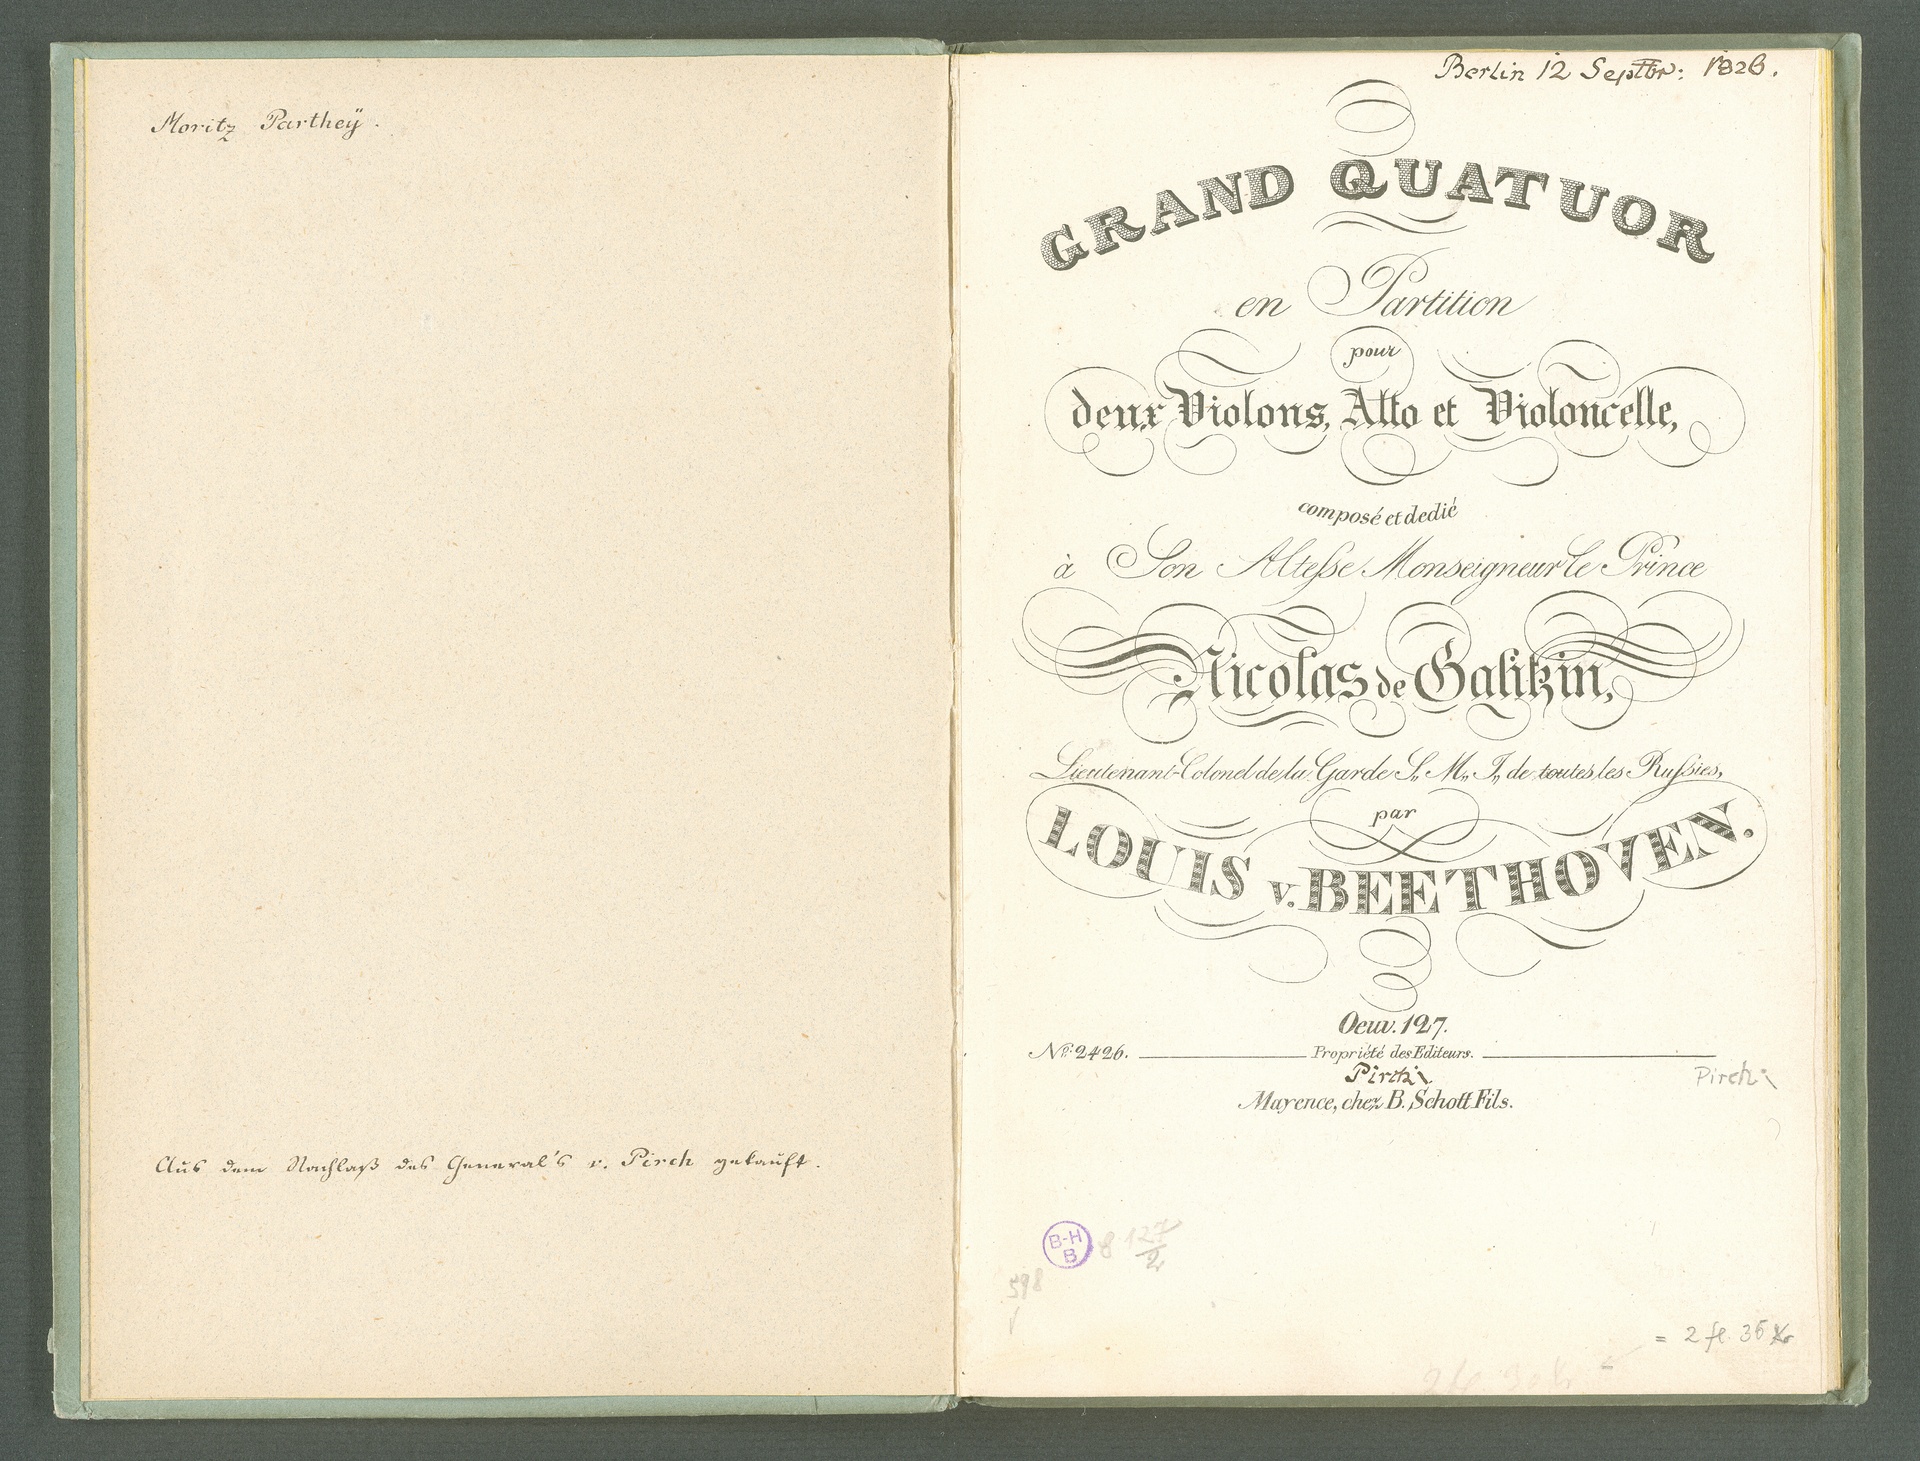 Moritz Partheÿ.
Aus dem Nachlaß des General's v. Pirch gekauft.
Berlin 12 Septbr: 1826.
GRAND QUATUOR
en Partition
pour
deux Violons, Alto et Violoncelle,
composé et dedié
à Son Altesse Monseigneur le Prince
Nicolas de Galitzin,
Lieutenant-Colonel de la Garde S. M. I. de toutes les Russies,
par
LOUIS v. BEETHOVEN.
Oeuv. 127.
No: 2426. Propriété des Editeurs.
Pirch
Pirch
Mayence, chez B. Schott Fils.
B-H
B
8 127/2
598
= 2 fl. 36 Xr